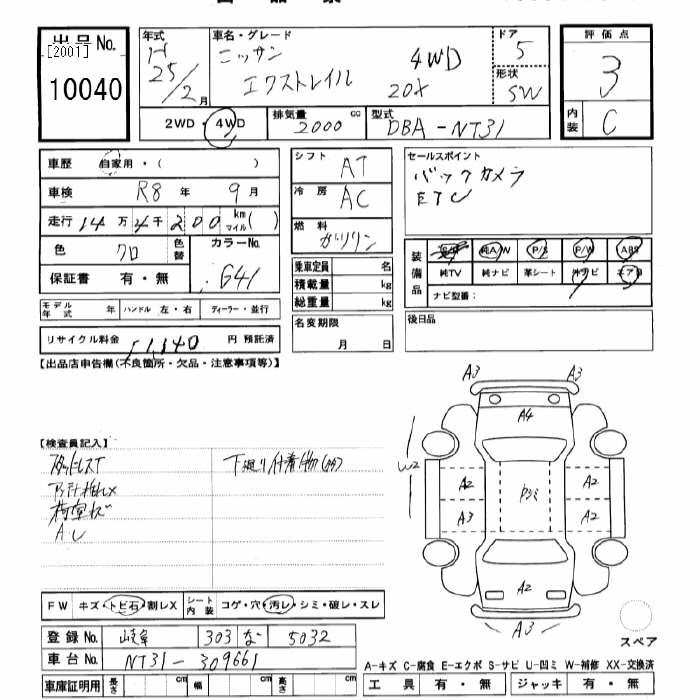 出品No.
[2001]
10040
年式
H
25/2月
車名・グレード
ニッサン
エクストレイル
4WD
20X
ドア
5
形状
SW
評価点
3
内装
C
2WD・4WD
排気量
2000 cc
型式
DBA-NT31
車歴 自家用・( )
車検 R8年 9月
走行 14万4千200 km マイル( )
色 クロ 色替
カラーNo.
G41
保証書 有・無
シフト AT
冷房 AC
燃料 ガソリン
乗車定員 名
積載量 kg
総重量 kg
セールスポイント
バックカメラ
ETC
装備品
純A/W P/S P/W ABS
純TV 純ナビ 革シート エアB
ナビ型番:
モデル年式 年 ハンドル 左・右 ディーラー・並行
リサイクル料金 円 預託済
名変期限
月 日
後日品
【出品店申告欄(不良箇所・欠品・注意事項等)】
【検査員記入】
スタッドレスT
下廻り付着物
AU
A3 A3
A4
W2
A2 A2
A3 A2
A2
A3
スペア
FW キズ・トビ石・割レX シート内装 コゲ・穴・汚レ・シミ・破レ・スレ
登録No. 岐阜 303 な 5032
車台No. NT31-309661
車庫証明用 長さ cm 幅 cm 高さ cm
A-キズ C-腐食 E-エクボ S-サビ U-凹ミ W-補修 XX-交換済
工具 有・無 ジャッキ 有・無